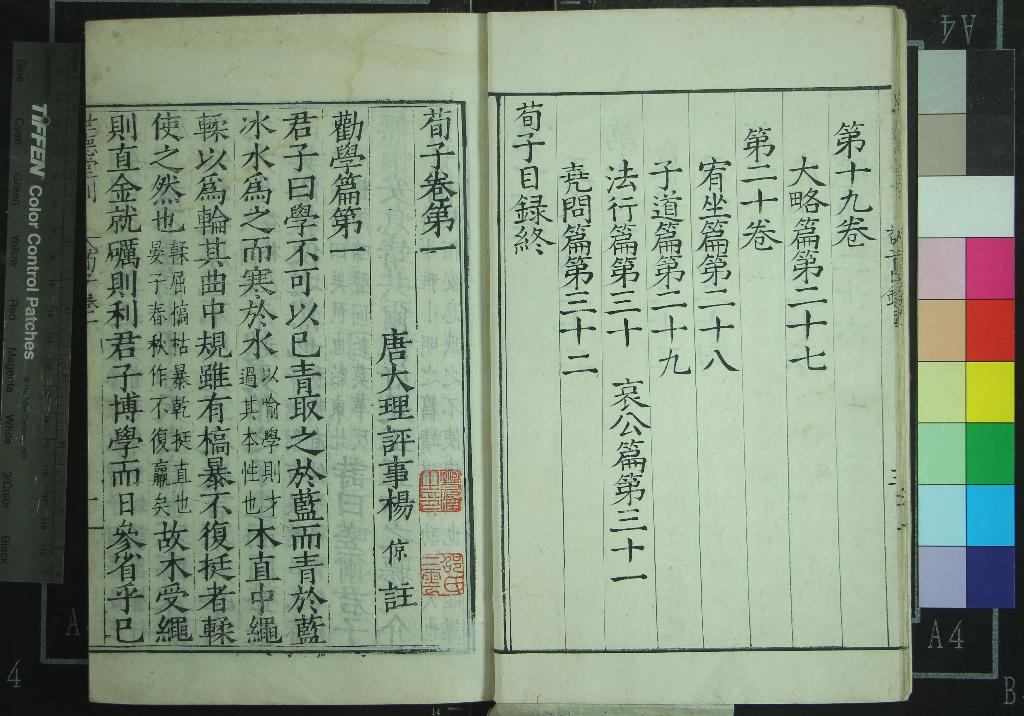 第十九卷
大略篇第二十七
第二十卷
宥坐篇第二十八
子道篇第二十九
法行篇第三十 哀公篇第三十一
堯問篇第三十二
荀子目録終
荀子卷第一
唐大理評事楊倞註
勸學篇第一
君子曰學不可以已青取之於藍而青於藍
冰水爲之而寒於水以喻學則才過其本性也木直中繩
輮以爲輪其曲中規雖有槁暴不復挺者輮
使之然也輮屈槁枯暴乾挺直也晏子春秋作不復羸矣故木受繩
則直金就礪則利君子博學而日參省乎已
TIFFEN Color Control Patches
Blue
Cyan
Green
Yellow
Red
Magenta
White
3/Color
Black
A4
A4
A
4
B